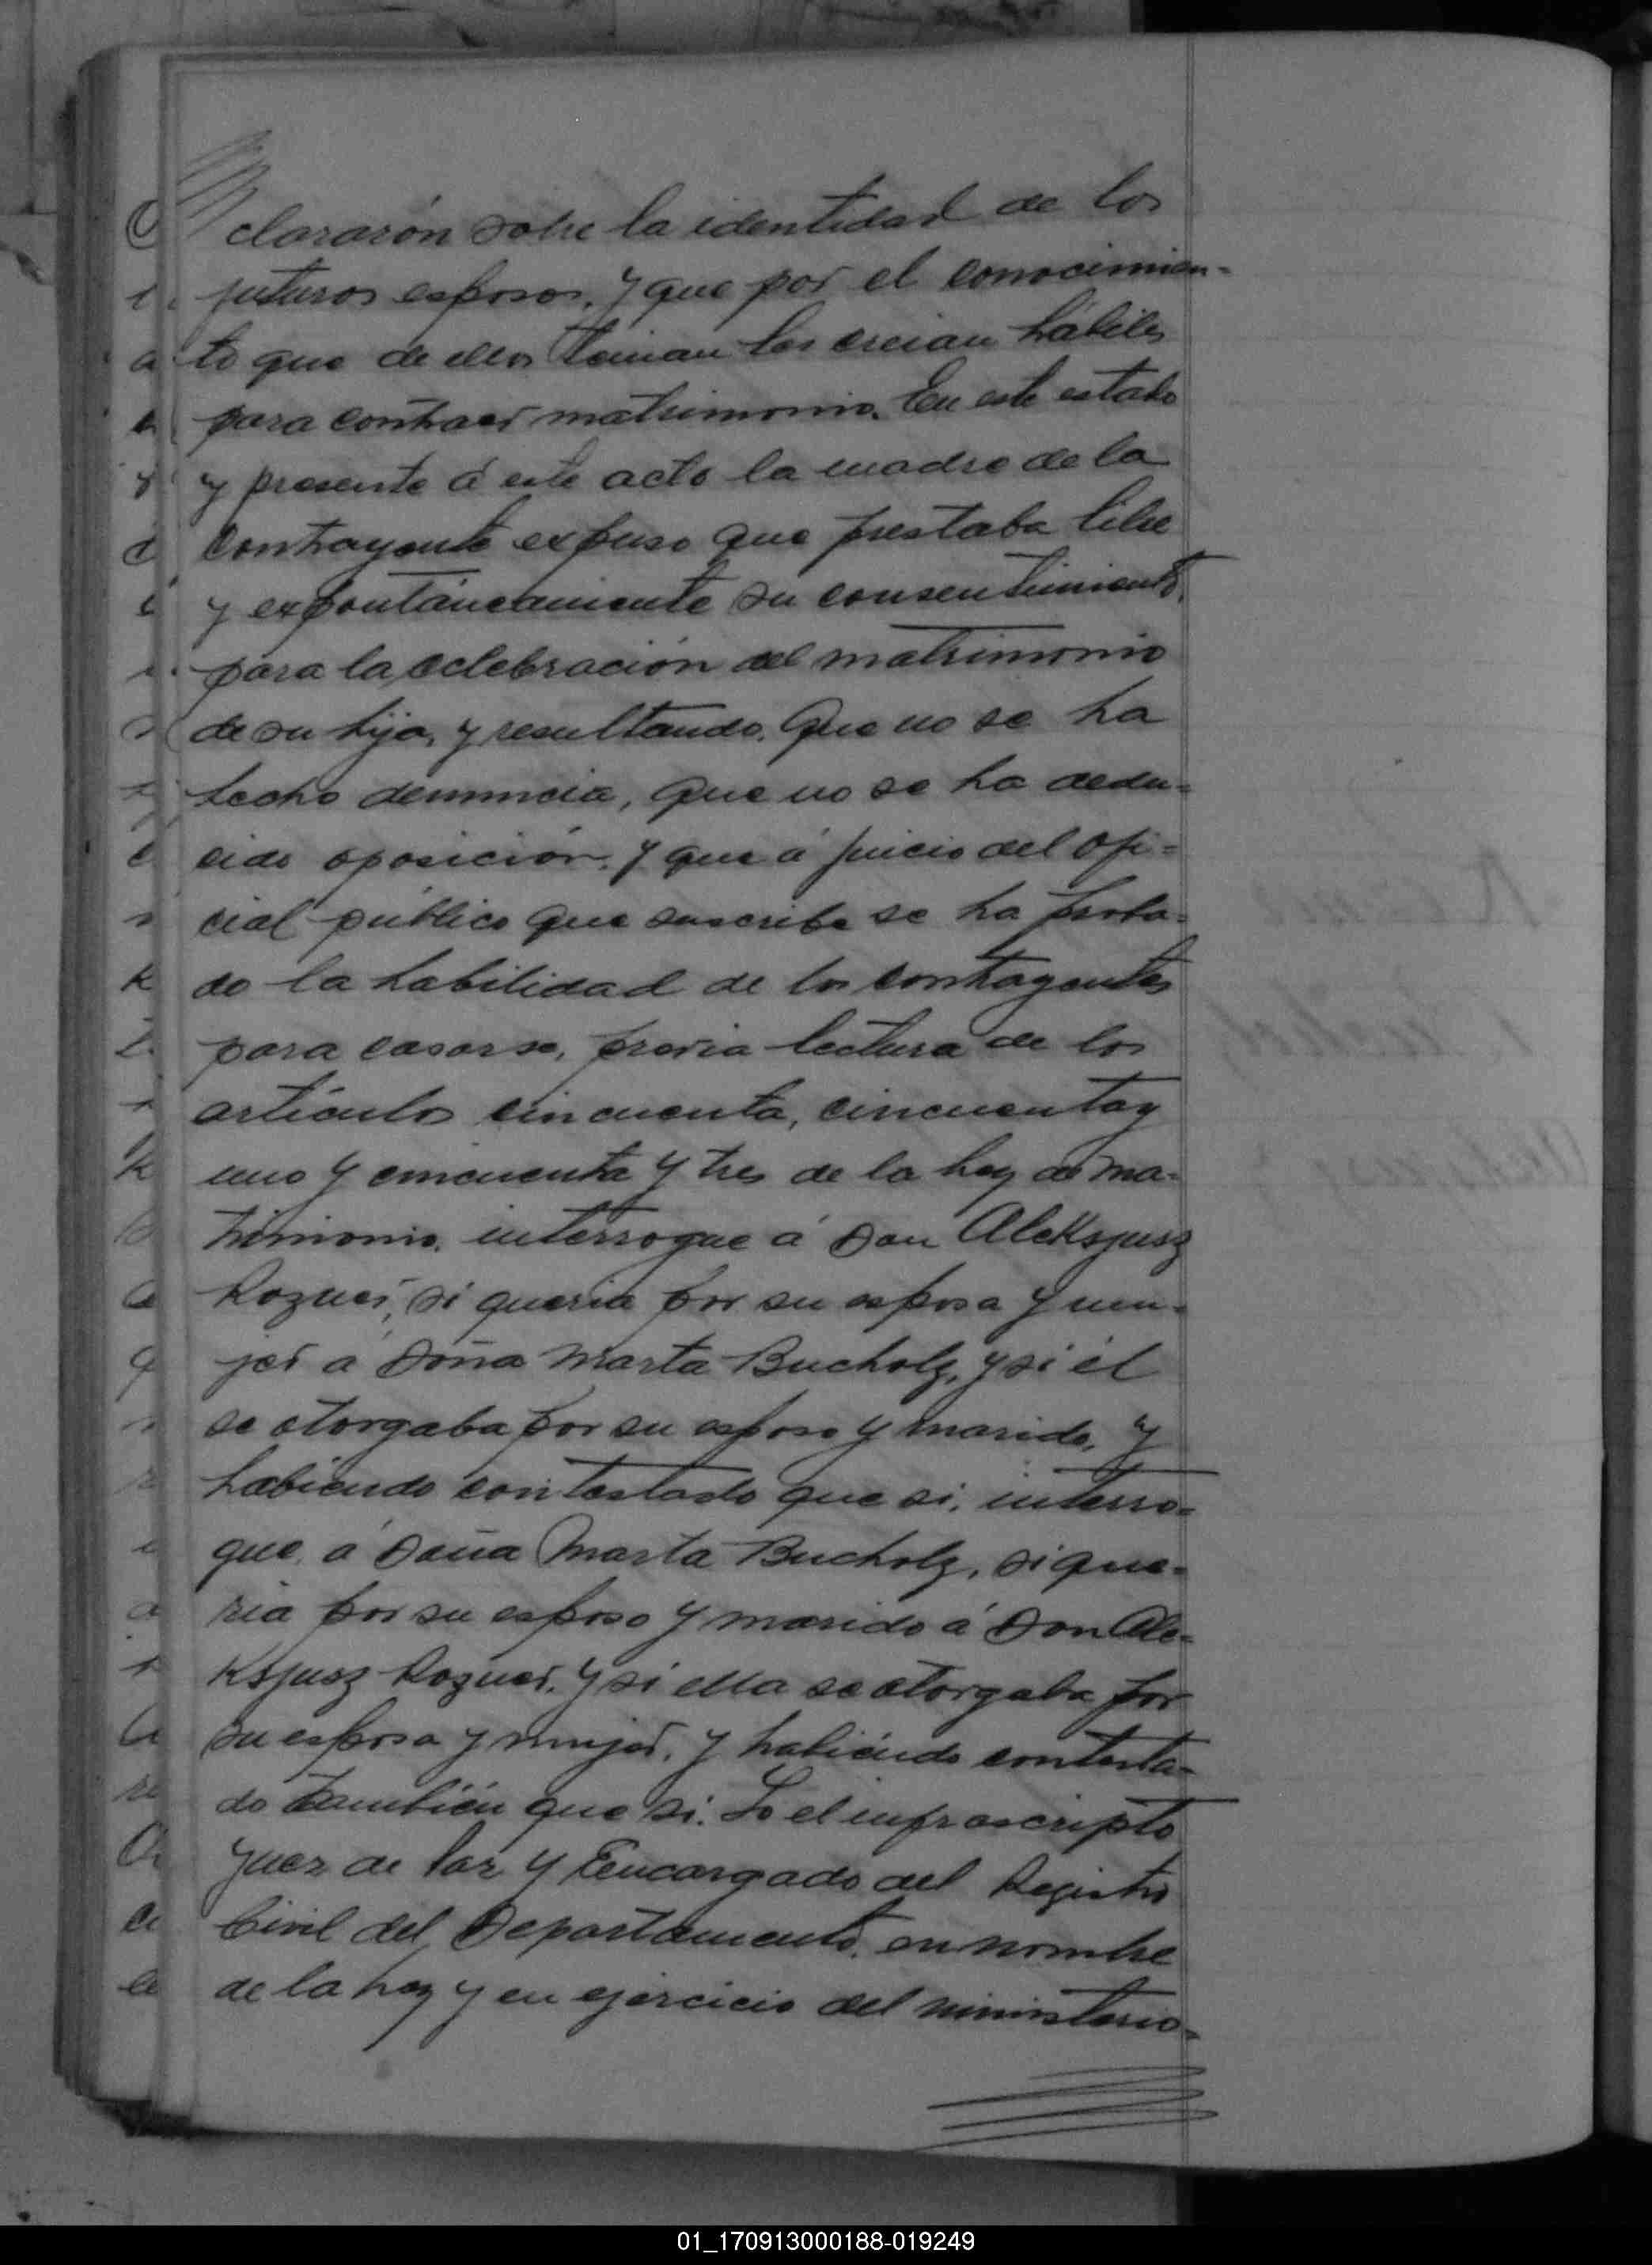 clararón sobre la identidad de los
futuros esposos, y que por el conocimien-
to que de ellos tenian los creian hábiles
para contraer matrimonio. En este estado
y presente á este acto la madre de la
contrayente expuso que prestaba libre
y expontáneamente su consentimiento,
para la celebración del matrimonio
de su hija, y resultando. Que no se ha
hecho denuncia, que no se ha dedu-
cido oposición, y que á juicio del ofi-
cial público que suscribe se ha proba-
do la habilidad de los contrayentes
para casarse, previa lectura de los
artículos cincuenta, cincuenta y
uno y cincuenta y tres de la Ley de ma-
trimonio, interrogue á Don Aleksjusz
Rozner, si queria por su esposa y mu-
jer á Doña Marta Bucholz, y si él
se otorgaba por su esposo y marido, y
habiendo contestado que si, interro-
gue á Doña Marta Bucholz, si que-
ria por su esposo y marido á Don Ale-
ksjusz Rozner, y si ella se otorgaba por
su esposa y mujer, y habiendo contesta-
do también que si. Yo el infrascripto
Juez de Paz y Encargado del Registro
Civil del Departamento, en nombre
de la Ley y en ejercicio del ministerio-
01_170913000188-019249